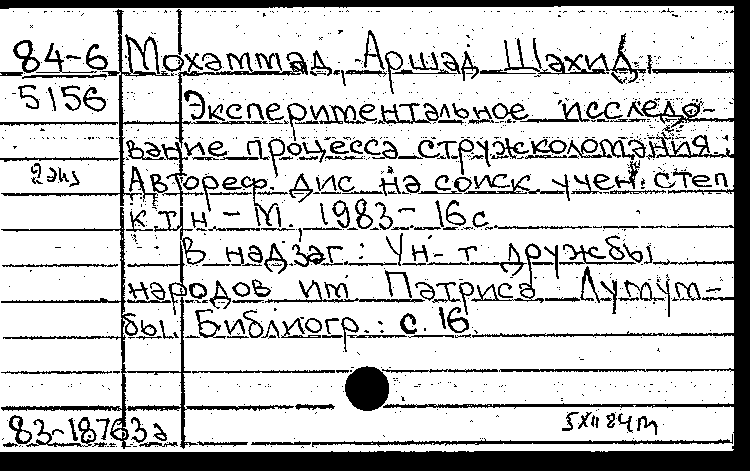 84-6 Мохаммад, Аршад Шахид.
5156 Экспериментальное исследо-
вание процесса стружколомания :
2 экз Автореф. дис на соиск. учен. степ
к. т. н. - М., 1983 - 16 с.
В надзаг.: Ун-т дружбы
народов им Патриса Лумум-
бы. Библиогр.: с. 16.
83-18763а 5 XII 84 м